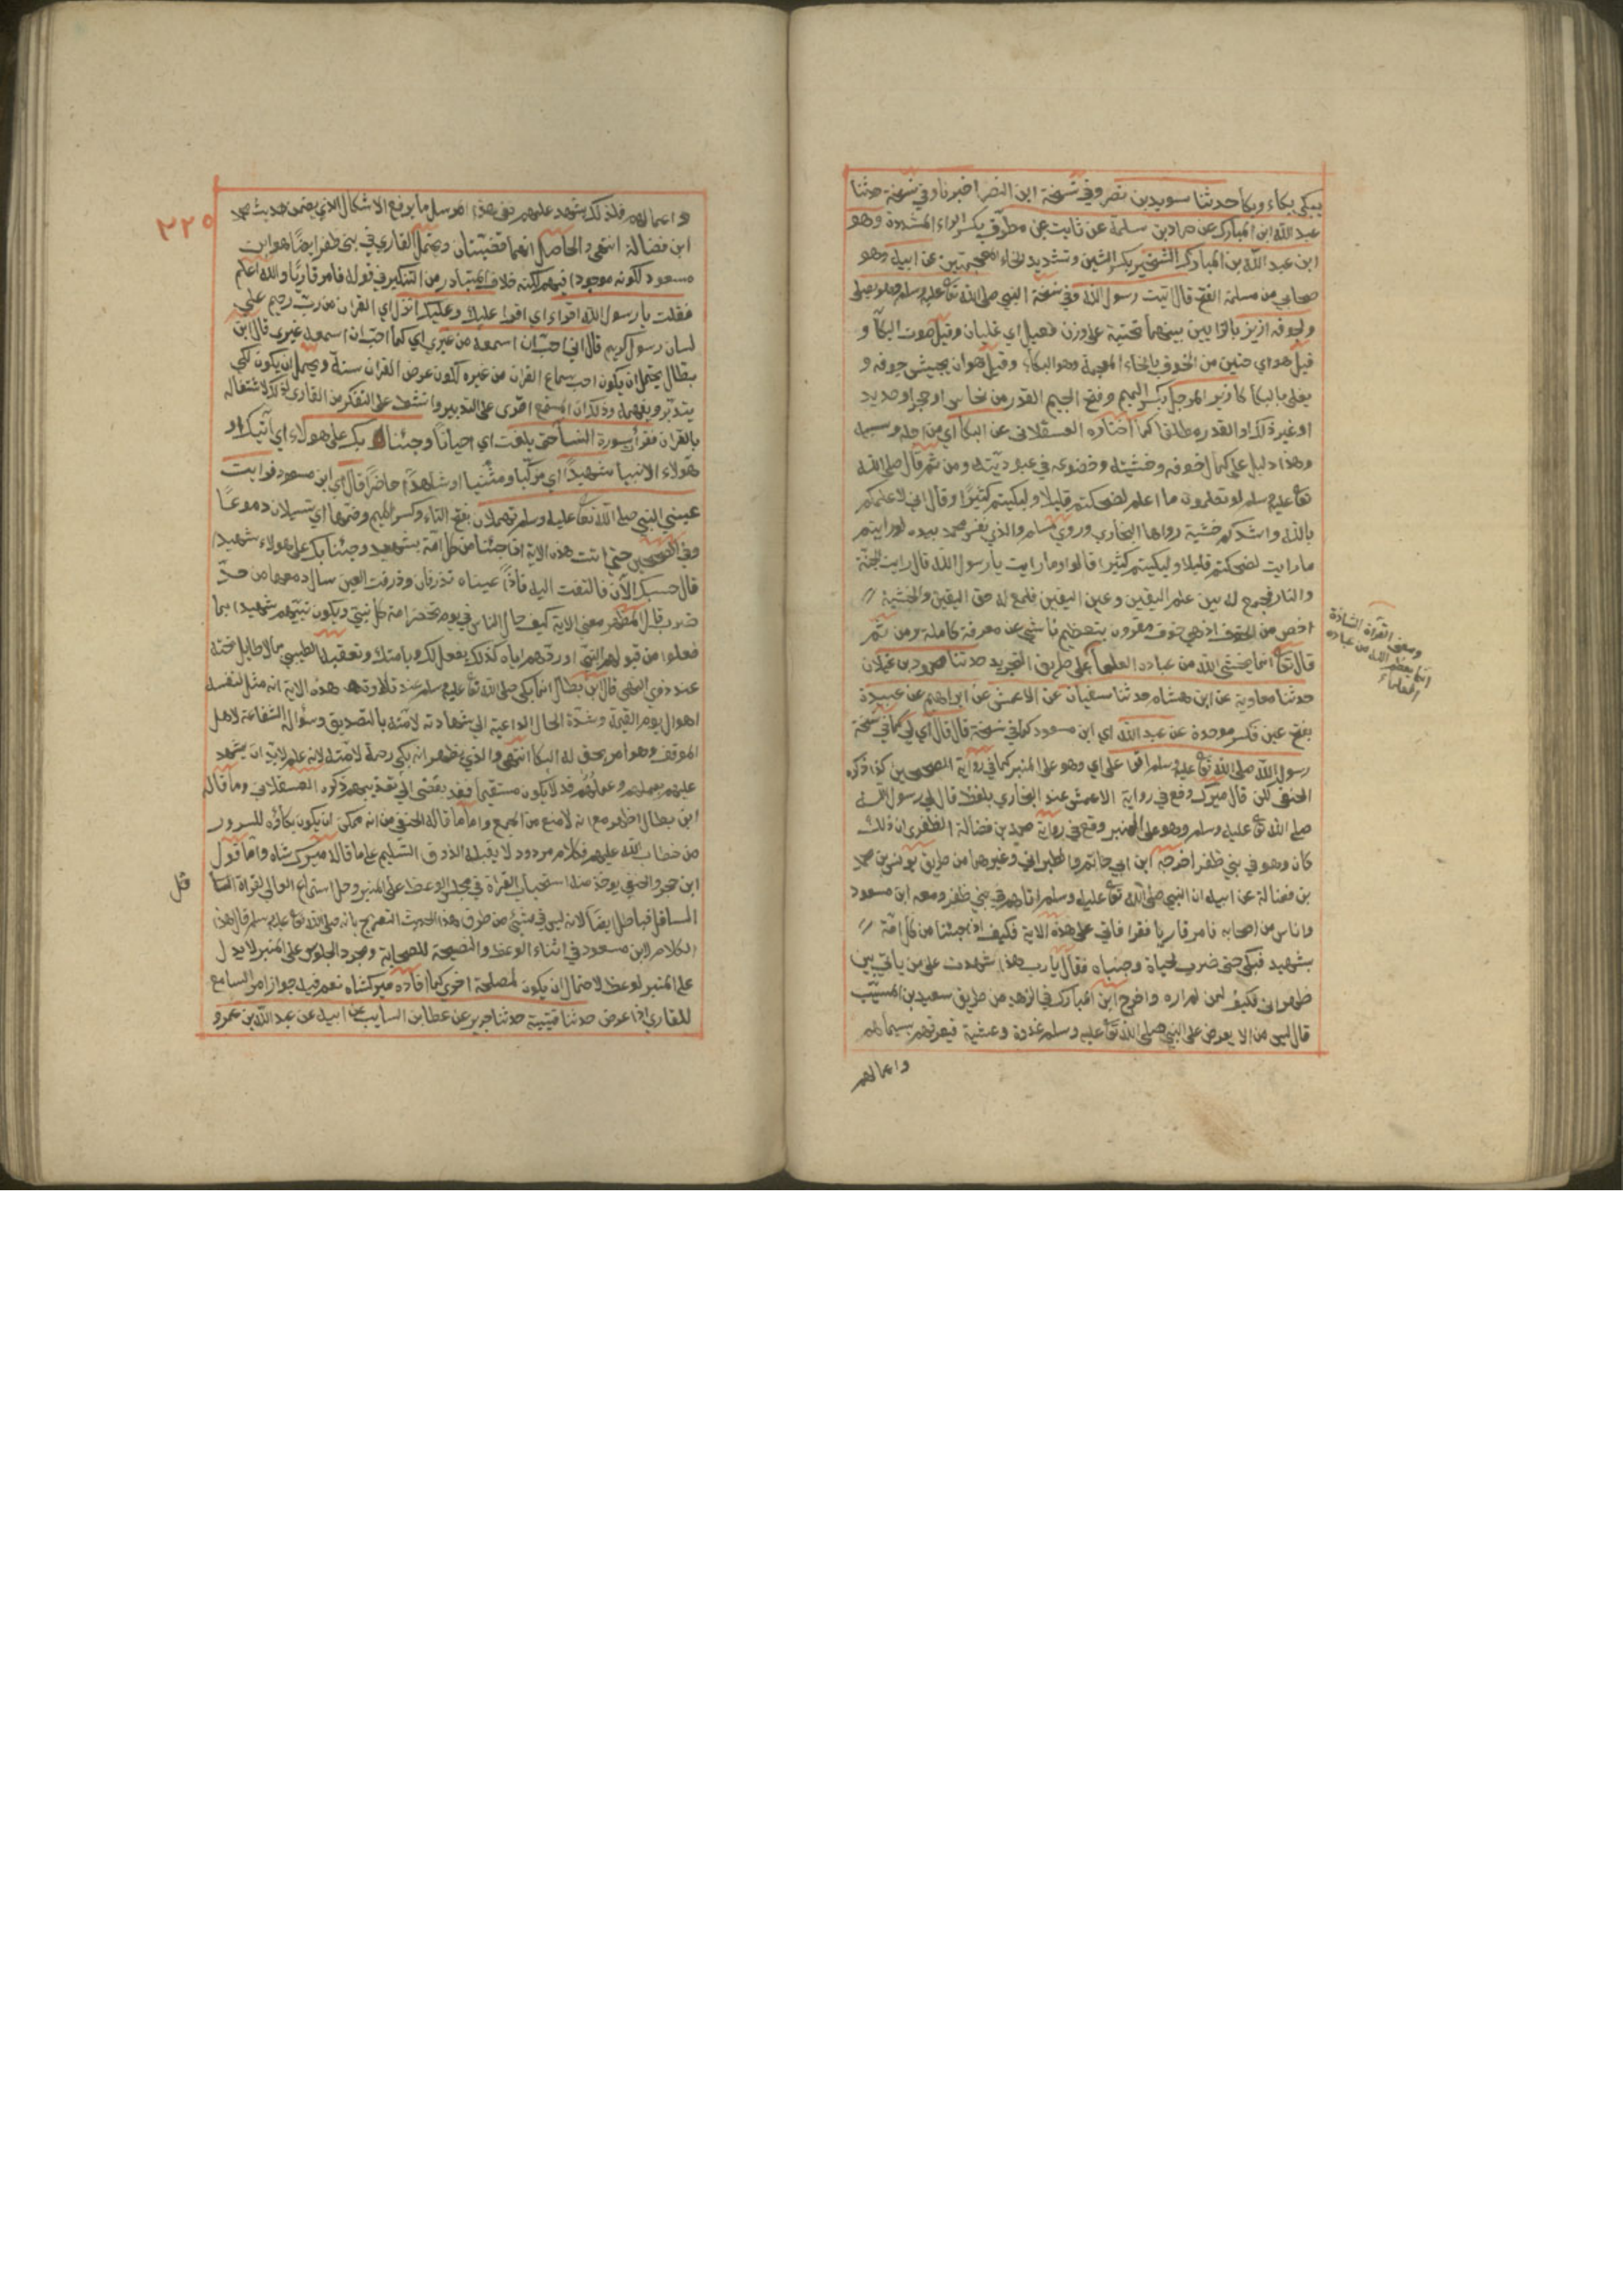 يبكي بكاء وبكا حدثنا سويد بن نصر وفي نسخة ابن النضر اخبرنا وفي نسخة حدثنا
عبد الله ابن المبارك عن حماد بن سلمة عن ثابت عن مطرف بكسر الراء المشددة وهو
ابن عبد الله بن المبارك الشخير بكسر الشين وتشديد الخاء المعجمتين عن ابيه وهو
صحابي من مسلمة الفتح قال اتيت رسول الله وفي نسخة النبي صلى الله تعا عليه وسلم وهو يصلي
ولجوفه ازيز بالزايين بينهما تحتية على وزن فعيل اي غليان وقيل صوت البكآ و
قيل هو اي حنين من الخوف بالخاء المعجمة وهو البكاء وقيل هو ان يجيش جوفه و
يغلي بالبكا كازيز المرجل بكسر الميم وفتح الجيم القدر من نحاس او حجر او حديد
او غير ذلك او القدر مطلقا كما اختاره العسقلاني عن البكآ اي من اجله وسببه
وهذا دليل على كمال خوفه وخشيته وخضوعه في عبوديته ومن ثم قال صلى الله
تعا عليه وسلم لو تعلمون ما اعلم لضحكتم قليلا ولبكيتم كثيرًا وقال اني لاعلمكم
بالله واشدكم خشية رواها البخاري وروي مسلم والذي نفس محمد بيده لو رايتم
ما رايت لضحكتم قليلا ولبكيتم كثيرا قالوا وما رايت يا رسول الله قال رايت الجنة
والنار فجمع له بين علم اليقين وعين اليقين فلمع له حق اليقين والخشية
اخص من الخوف اذ هي خوف مقرون بتعظيم ناشئ عن معرفة كاملة ومن ثم
قال تعا انما يخشى الله من عباده العلمآ على طريق التجريد حدثنا محمود بن غيلان
ومعنى القرآة الشاذة
انما يعظم الله من عباده
العلماء
حدثنا معاوية عن ابن هشام حدثنا سفيان عن الاعمش عن ابراهيم عن عبيدة
بفتح عين فكسر موحدة عن عبد الله اي ابن مسعود كما في نسخة قال قال اي لي كما في نسخة
رسول الله صلى الله تعا عليه وسلم اقرا علي اي وهو على المنبر كما في رواية الصحيحين كذا ذكره
الحنفي لكن قال ميرك وقع في رواية الاعمش عند البخاري بلفظ قال لي رسول الله
صلى الله تعا عليه وسلم وهو على المنبر وقع في رواية محمد بن فضالة الظفري ان ذلك
كان وهو في بني ظفر اخرجه ابن ابي حاتم والطبراني وغيرهما من طريق يونس بن محمد
بن فضالة عن ابيه ان النبي صلى الله تعا عليه وسلم اتاهم في بني ظفر ومعه ابن مسعود
واناس من اصحابه فامر قاريا فقرا فاتي على هذه الاية فكيف اذا جئنا من كل امة
بشهيد فبكى حتى ضرب لحياة وجنباه فقال يا رب هذا شهدت على من ياتي بين
ظهراني فكيف لمن لم اره واخرج ابن المبارك في الزهد من طريق سعيد بن المسيب
قال ليس من الا يعرض على النبي صلى الله تعا عليه وسلم غدوة وعشية فيعرفهم بسيماهم
واعمالهم
٢٢٥
واعمالهم فلذلك يشهد عليهم ففي هذا المرسل ما يرفع الاشكال الذي يضمن حديث محمد
ابن فضالة انتهى والحاصل انهما قضيتان ويحتمل القاري في بني ظفر ايضًا هو ابن
مسعود لكونه موجودا فيهم لكنه خلاف المتبادر من التنكير في قوله فامر قاريًا والله اعلم
فقلت يا رسول الله اقراء اي اقرا عليك وعليك انزل اي القران من رب رحيم على
لسان رسول كريم قال اني احب ان اسمعه من غيري اي كما احب ان اسمعه غيري قال ابن
بطال يحتمل ان يكون احب سماع القران من غيره لكون عرض القران سنة ويحتمل ان يكون لكي
يتدبر ويفهمه وذلك ان المستمع اقوى على التدبير وانشط على التفكر من القارى لاشتغاله
بالقران فقرأ سورة النسآ حتى بلغت اي احيانًا وجئنا بك على هولاء اي آتيك او
هؤلاء الانبيا شهيدًا اي مزكيا ومثنيا او شاهدًا حاضرًا قال اي ابن مسعود فرايت
عيني النبي صلى الله تعا عليه وسلم تهملان بفتح التاء وكسر الميم وضمها اي تسيلان دموعًا
وفي الصحيحين حتى اتت هذه الاية اذا جئنا من كل امة بشهيد وجئنا بك على هولاء شهيدا
قال حسبك الآن فالتفت اليه فاذا عيناه تذرفان وذرفت العين سال دمعها من حدّ
ضرب قال المظهر معنى الاية كيف حال الناس في يوم تحضر امة كل نبي ويكون نبيهم شهيدا بما
فعلوا من قبولهم النبي او ردهم اياه كذلك يفعل لك وبامتك وتعقبه الطيبي مالا طايل تحته
عند ذوي النهى قال ابن بطال انما بكى صلى الله تعا عليه وسلم عند تلاوته هذه الاية انه مثل لنفسه
اهوال يوم القيمة وشدّة الحال الداعية الى شهادته لامته بالتصديق وسؤال الشفاعة لاهل
الموقف وهو امر يحق له البكآ انتهى والذي يظهر انه بكى رحمة لامته لانه علم لابد ان يشهد
عليهم بعملهم وعملهم قد لا يكون مستقيما فقد يفضي الى تعذيبهم ذكره العسقلاني وما قاله
ابن بطال اظهر مع انه لا منع من الجمع واما ما قاله الحنفي من انه يمكن ان يكون بكاؤه للسرور
من خطاب الله عليهم فكلام مردود لا يقبله الذوق السليم على ما قاله ميرك شاه واما قول
ابن حجر والحنفي يوخذ منه استحباب القراة في مجلس الوعظ على المنبر وحل استماع العالي لقراة
السافل فباطل ايضا لانه ليس في شئ من طرق هذا الحديث التصريح بانه صلى الله تعا عليه وسلم قال هذا
الكلام لابن مسعود في اثناء الوعظ والنصيحة للصحابة ومجرد الجلوس على المنبر لا يدل
على المنبر لوعظ لاحتمال ان يكون لمصلحة اخرى كما افاده ميركشاه نعم فيه جواز امر السامع
للقاري اذا عرض حدثنا قتيبة حدثنا جرير عن عطا بن السايب عن ابيه عن عبد الله بن عمرو